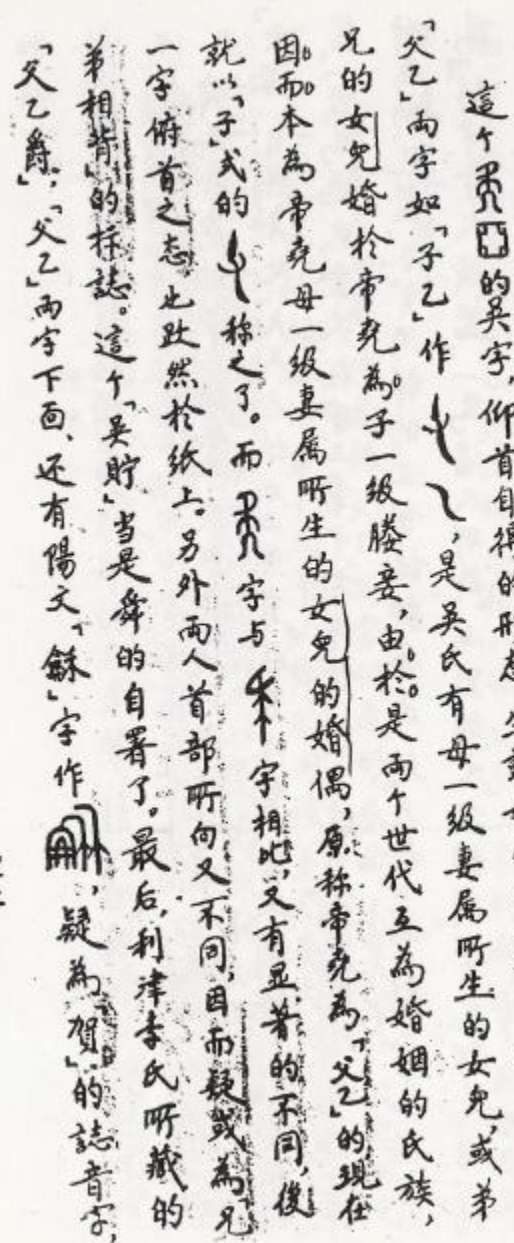 這个的吴字，仰首自得的形态
「父乙」両字如「子乙」作，是吴氏有母一级妻属所生的女兒，或弟
兄的女兒婚於帝尭為子一级媵妾，由於是両个世代互為婚姻的氏族，
因而本為帝尭母一级妻属所生的女兒的婚偶，原称帝尭為「父乙」的現在
就以「子」式的称之了。而字与字相比，又有显著的不同，後
一字俯首之态也跃然於纸上。另外両人首部所向又不同，因而疑或為「兄
弟相背」的标誌。這个「吴貯」当是舜的自署了。最后，利津李氏所藏的
「父乙爵」，「父乙」両字下面，还有陽文「龢」字作，疑為「賀」的誌音字，